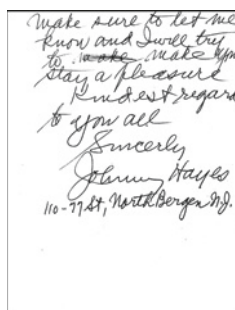 make sure to let me
know and I will try
to make make your
stay a pleasure
Kindest regard
to you all
Sincerly
Johnny Hayes
110-77 St, North Bergen N.J.